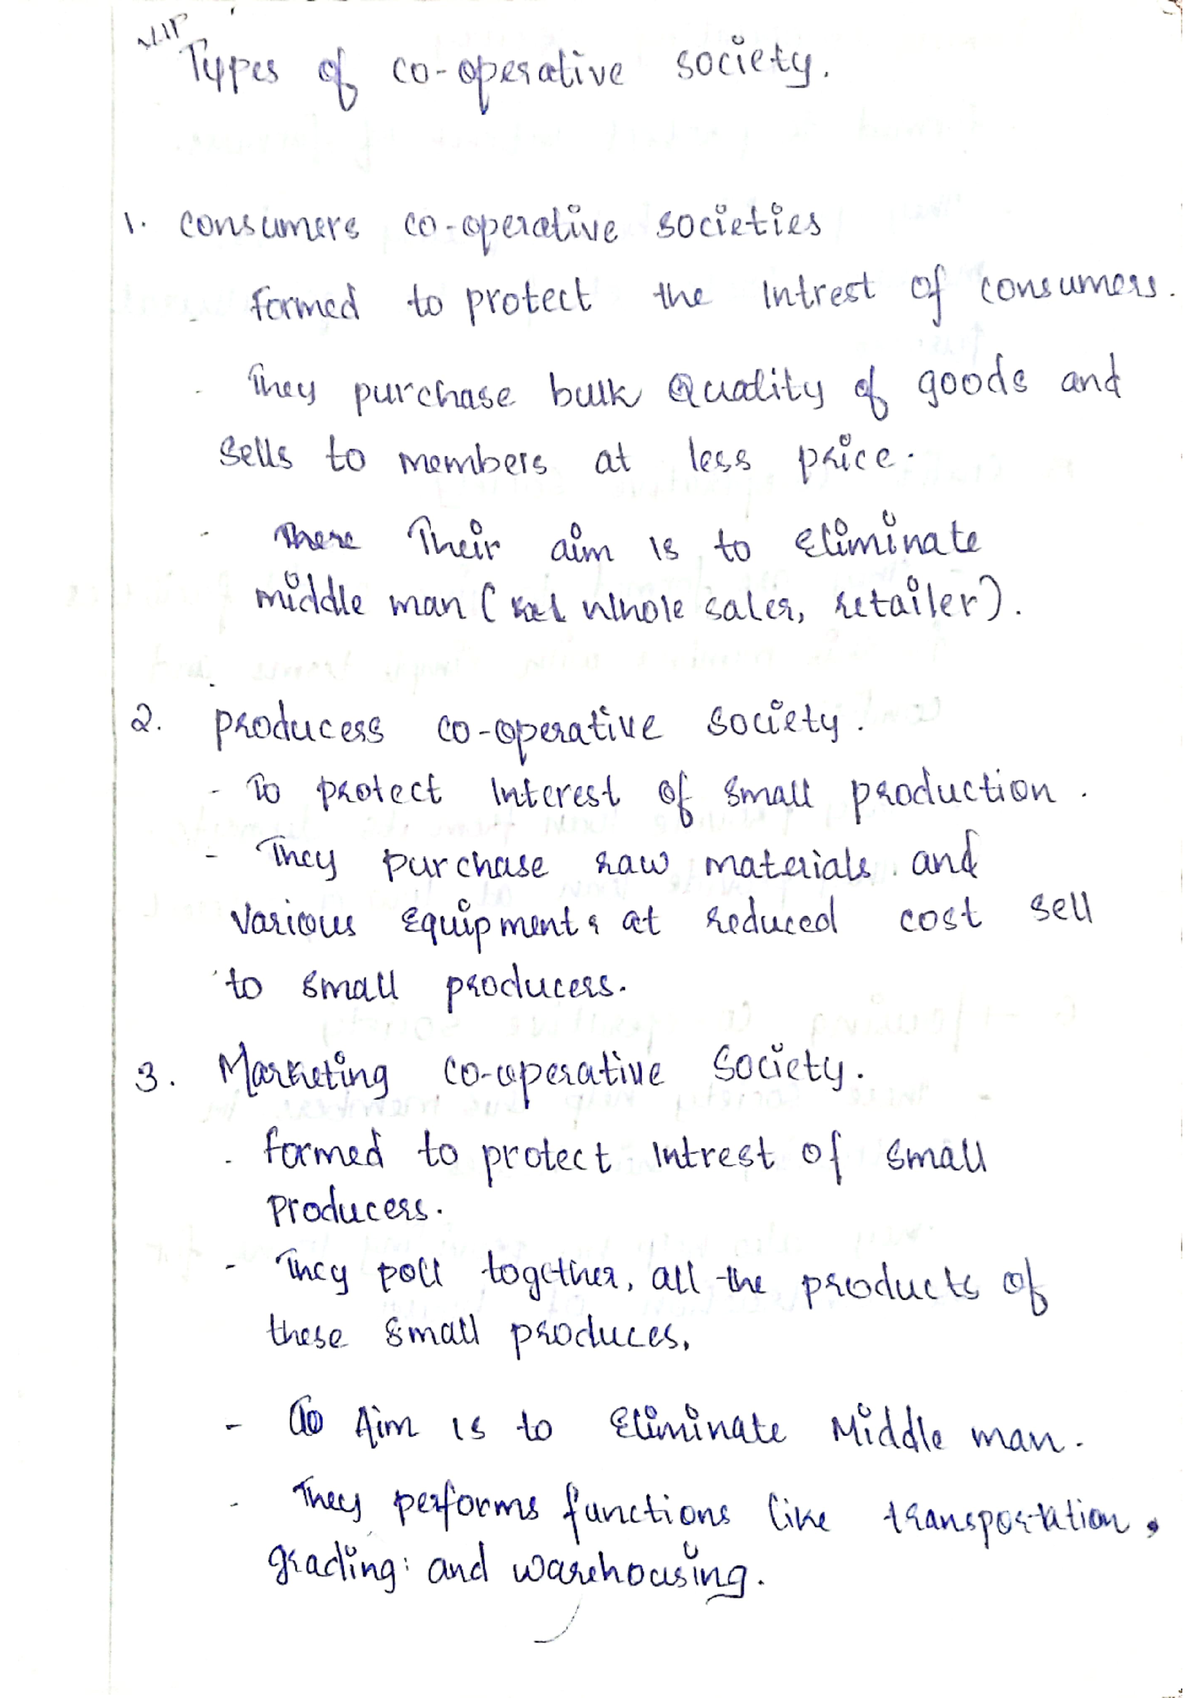 VIP
Types of co-operative society.
1. consumers co-operative societies
formed to protect the Intrest of consumers.
- They purchase bulk Quality of goods and
sells to members at less price.
- There Their aim is to Eliminate
middle man ( whole saler, retailer).
2. producess co-operative society.
- To protect Interest of small production.
- They purchase raw materials and
various equipments at reduced cost sell
to small producers.
3. Marketing co-operative society.
- formed to protect Intrest of small
producers.
- They poll together, all the products of
these small produces,
- To Aim is to Eliminate Middle man.
- They performs functions like transportation,
grading: and warehousing.